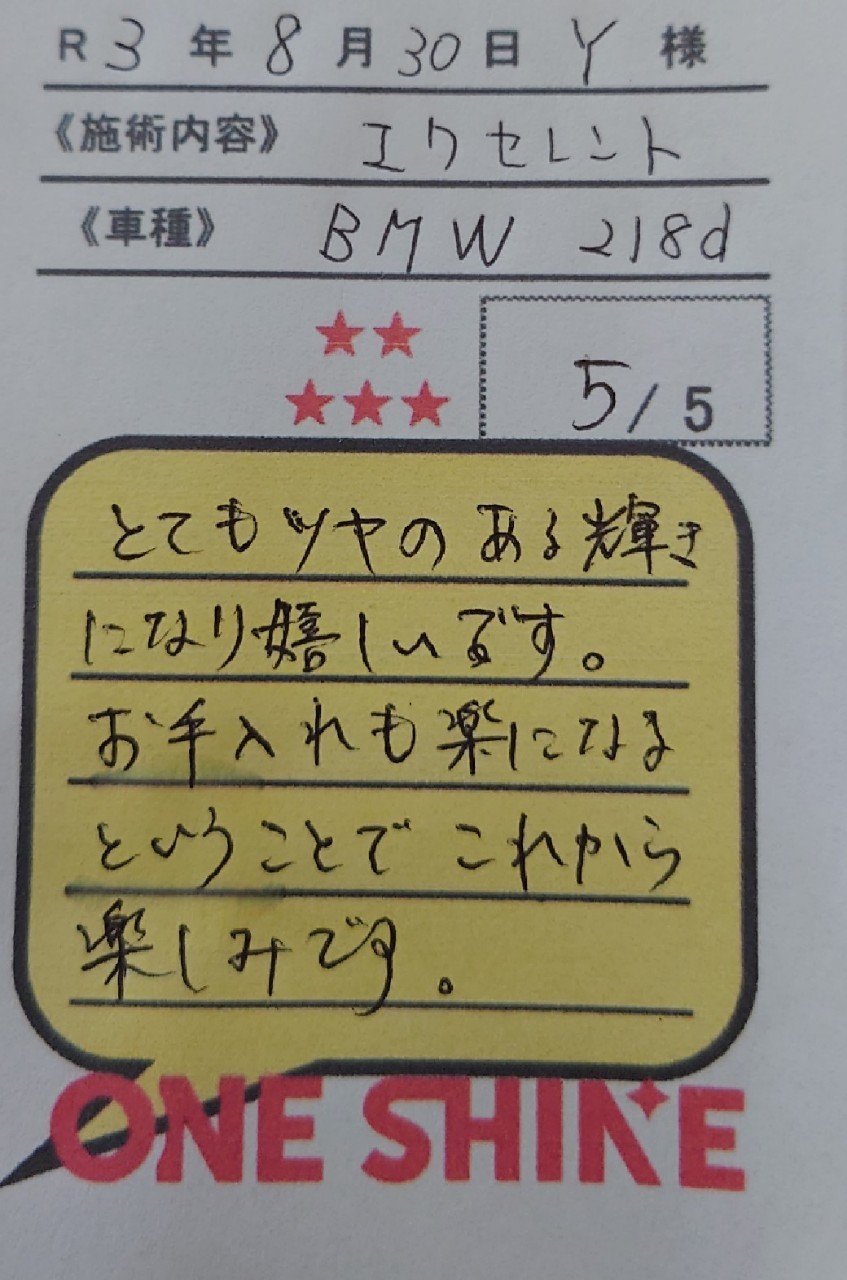 R 3 年 8 月 30 日 Y 様
《施術内容》 エクセレント
《車種》 BMW 218d
5/5
とてもツヤのある輝き
になり嬉しいです。
お手入れも楽になる
ということで これから
楽しみです。
ONE SHINE